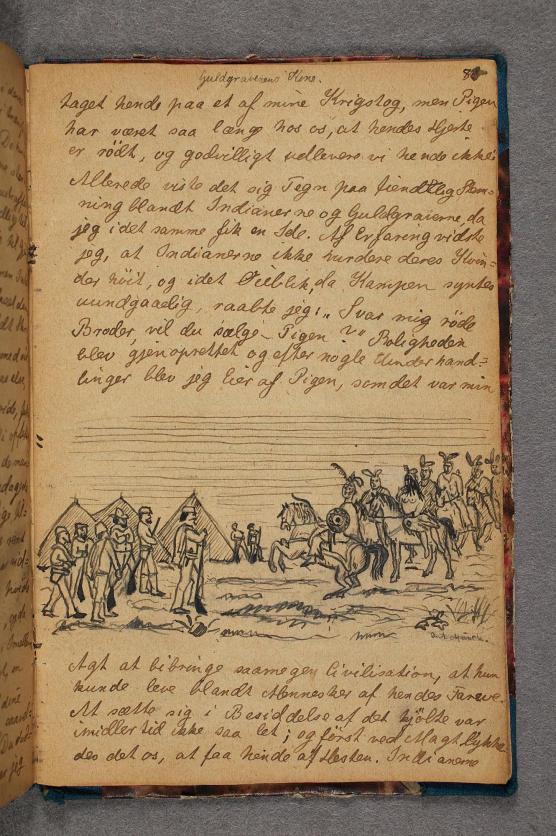 Guldgraverens Kone.
taget hende paa et af mine Krigstog, men Pigen
har været saa længe hos os, at hendes Hjerte
er rødt, og godvilligt udlevere vi hende ikke.
Allerede viste det sig Tegn paa fiendtlig Stem-
ning blandt Indianerne og Guldgraverne, da
jeg i det samme fik en Ide. Af Erfaring vidste
jeg, at Indianerne ikke vurdere deres Kvin-
der høit, og i det Øieblik, da Kampen syntes
uundgaaelig, raabte jeg: „Svar mig røde
Broder, vil du sælge Pigen?" Roligheden
blev gjenoprettet og efter nogle Underhand-
linger blev jeg Eier af Pigen, som det var min
Agt at bibringe saamegen Civilisation, at hun
kunde leve blandt Mennesker af hendes Farve.
At sætte sig i Besiddelse af det kjøbte var
imidlertid ikke saa let; og først ved Magt lykke-
des det os, at faa hende af Hesten. Indianerne